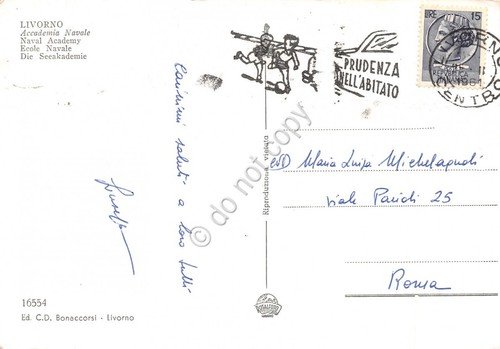 LIVORNO
Accademia Navale
Naval Academy
Ecole Navale
Die Seeakademie
PRUDENZA
NELL'ABITATO
LIRE 15
LIVORNO
CENTRO
Carissimi saluti a loro tutti
Giuseppe
Riproduzione vietata
Maria Luisa Michelagnoli
viale Parioli 25
Roma
do not copy
16554
Ed. C.D. Bonaccorsi - Livorno